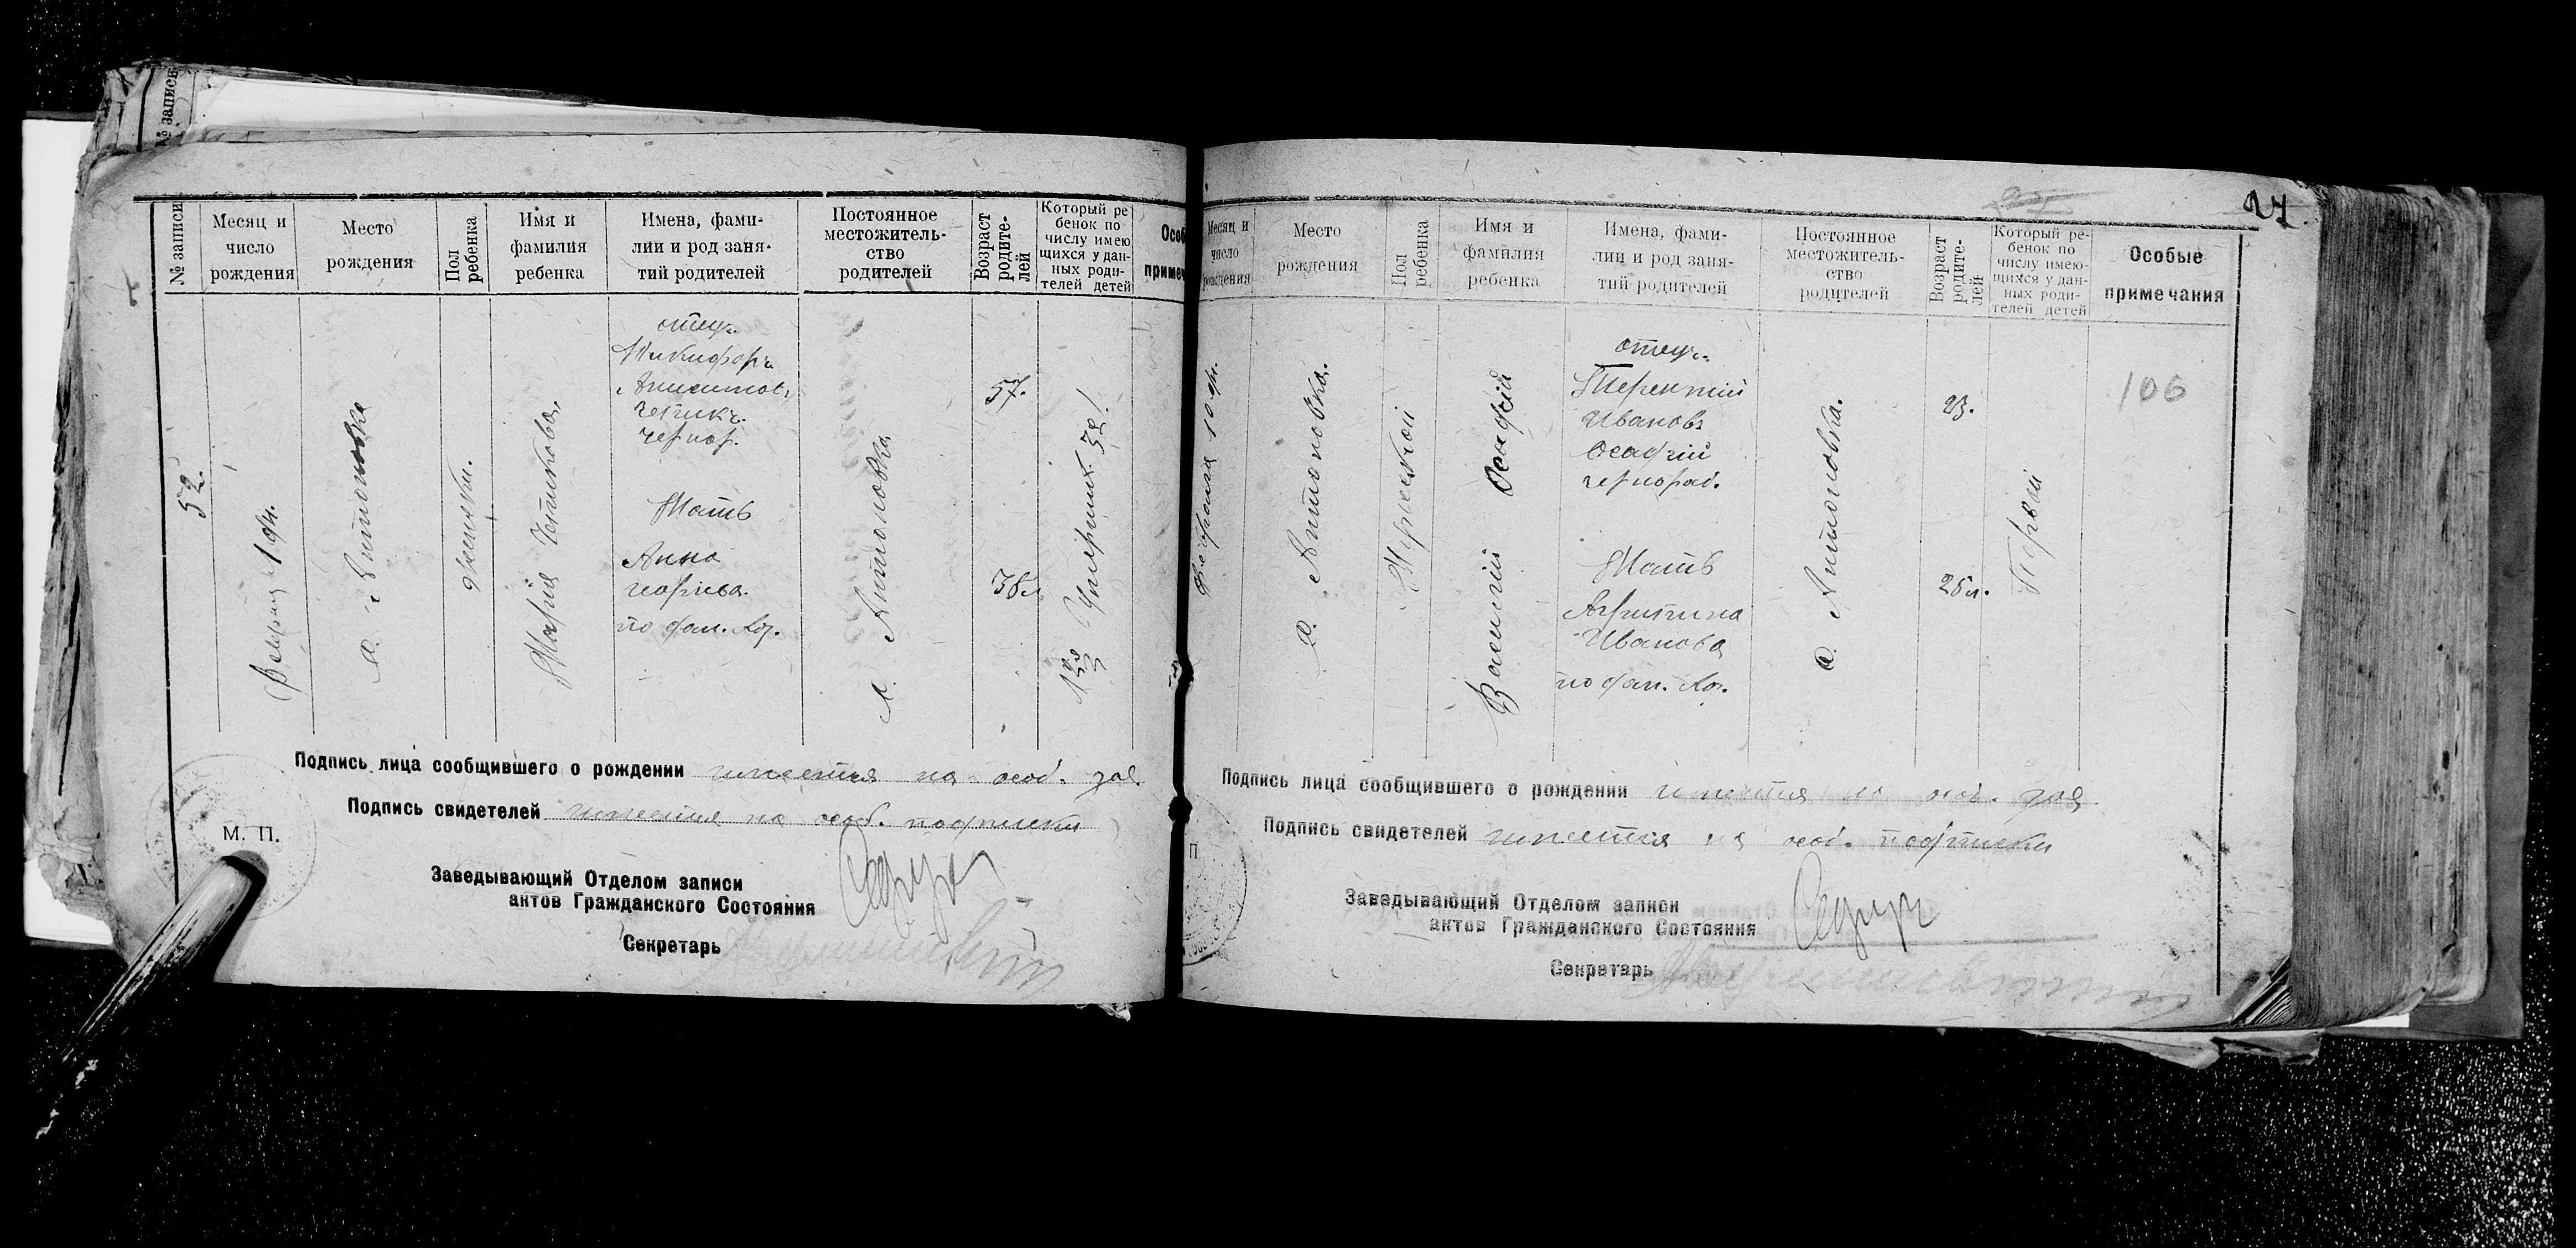 № записи
№ записи
Месяц и
число
рождения
Место
рождения
Пол
ребенка
Имя и
фамилия
ребенка
Имена, фами-
лии и род заня-
тий родителей
Постоянное
местожитель-
ство
родителей
Возраст
родите-
лей
Который ре
бенок по
числу имею
щихся у дан-
ных роди-
телей детей
Особ
примеч
52.
1 дн.
Антоновка
женск.
Мария
отец
Никифоръ
чернор.
Мать
Анна
по фам. его.
Антоновка
57.
38 л
Умерших
Подпись лица сообщившего о рождении имеется на особ. зая
Подпись свидетелей имеется на особ. подписки
М. П.
Заведывающий Отделом записи
актов Гражданского Состояния
Секретарь
27
Месяц и
число
рождения
Место
рождения
Пол
ребенка
Имя и
фамилия
ребенка
Имена, фами-
лии и род заня-
тий родителей
Постоянное
местожитель-
ство
родителей
Возраст
родите-
лей
Который ре-
бенок по
числу имею-
щихся у дан-
ных роди-
телей детей
Особые
примечания
Февраля 10 дн.
с. Антоновка.
Мужской
Василий Осадчій
отец
Терентій
Ивановъ
Осадчій
чернораб.
Мать
Иванова
по фам. его.
с. Антоновка.
23.
25 л.
Первой
106
Подпись лица сообщившего о рождении имеется на особ. зая
Подпись свидетелей имеется на особ. подписки
П
Заведывающий Отделом записи
актов Гражданского Состояния
Секретарь